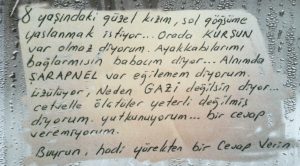 8 yaşındaki güzel kızım, sol göğsüme
yaslanmak istiyor... Orada KURŞUN
var olmaz diyorum. Ayakkabılarımı
bağlarmısın babacım diyor... Alnımda
ŞARAPNEL var eğilemem diyorum.
Üzülüyor, Neden GAZİ değilsin diyor...
cetvelle ölçtüler yeterli değilmiş
diyorum. yutkunuyorum... bir cevap
veremiyorum.
Buyrun, hadi yürekten bir Cevap Verin